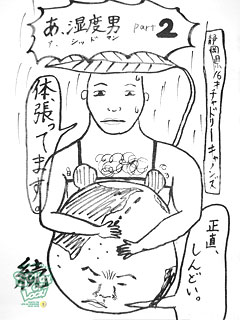 あ、湿度男 part 2
ア、シッドマン
静岡県 16才 チャドリー キャノンズ
体張ってます。
正直、しんどい。
続